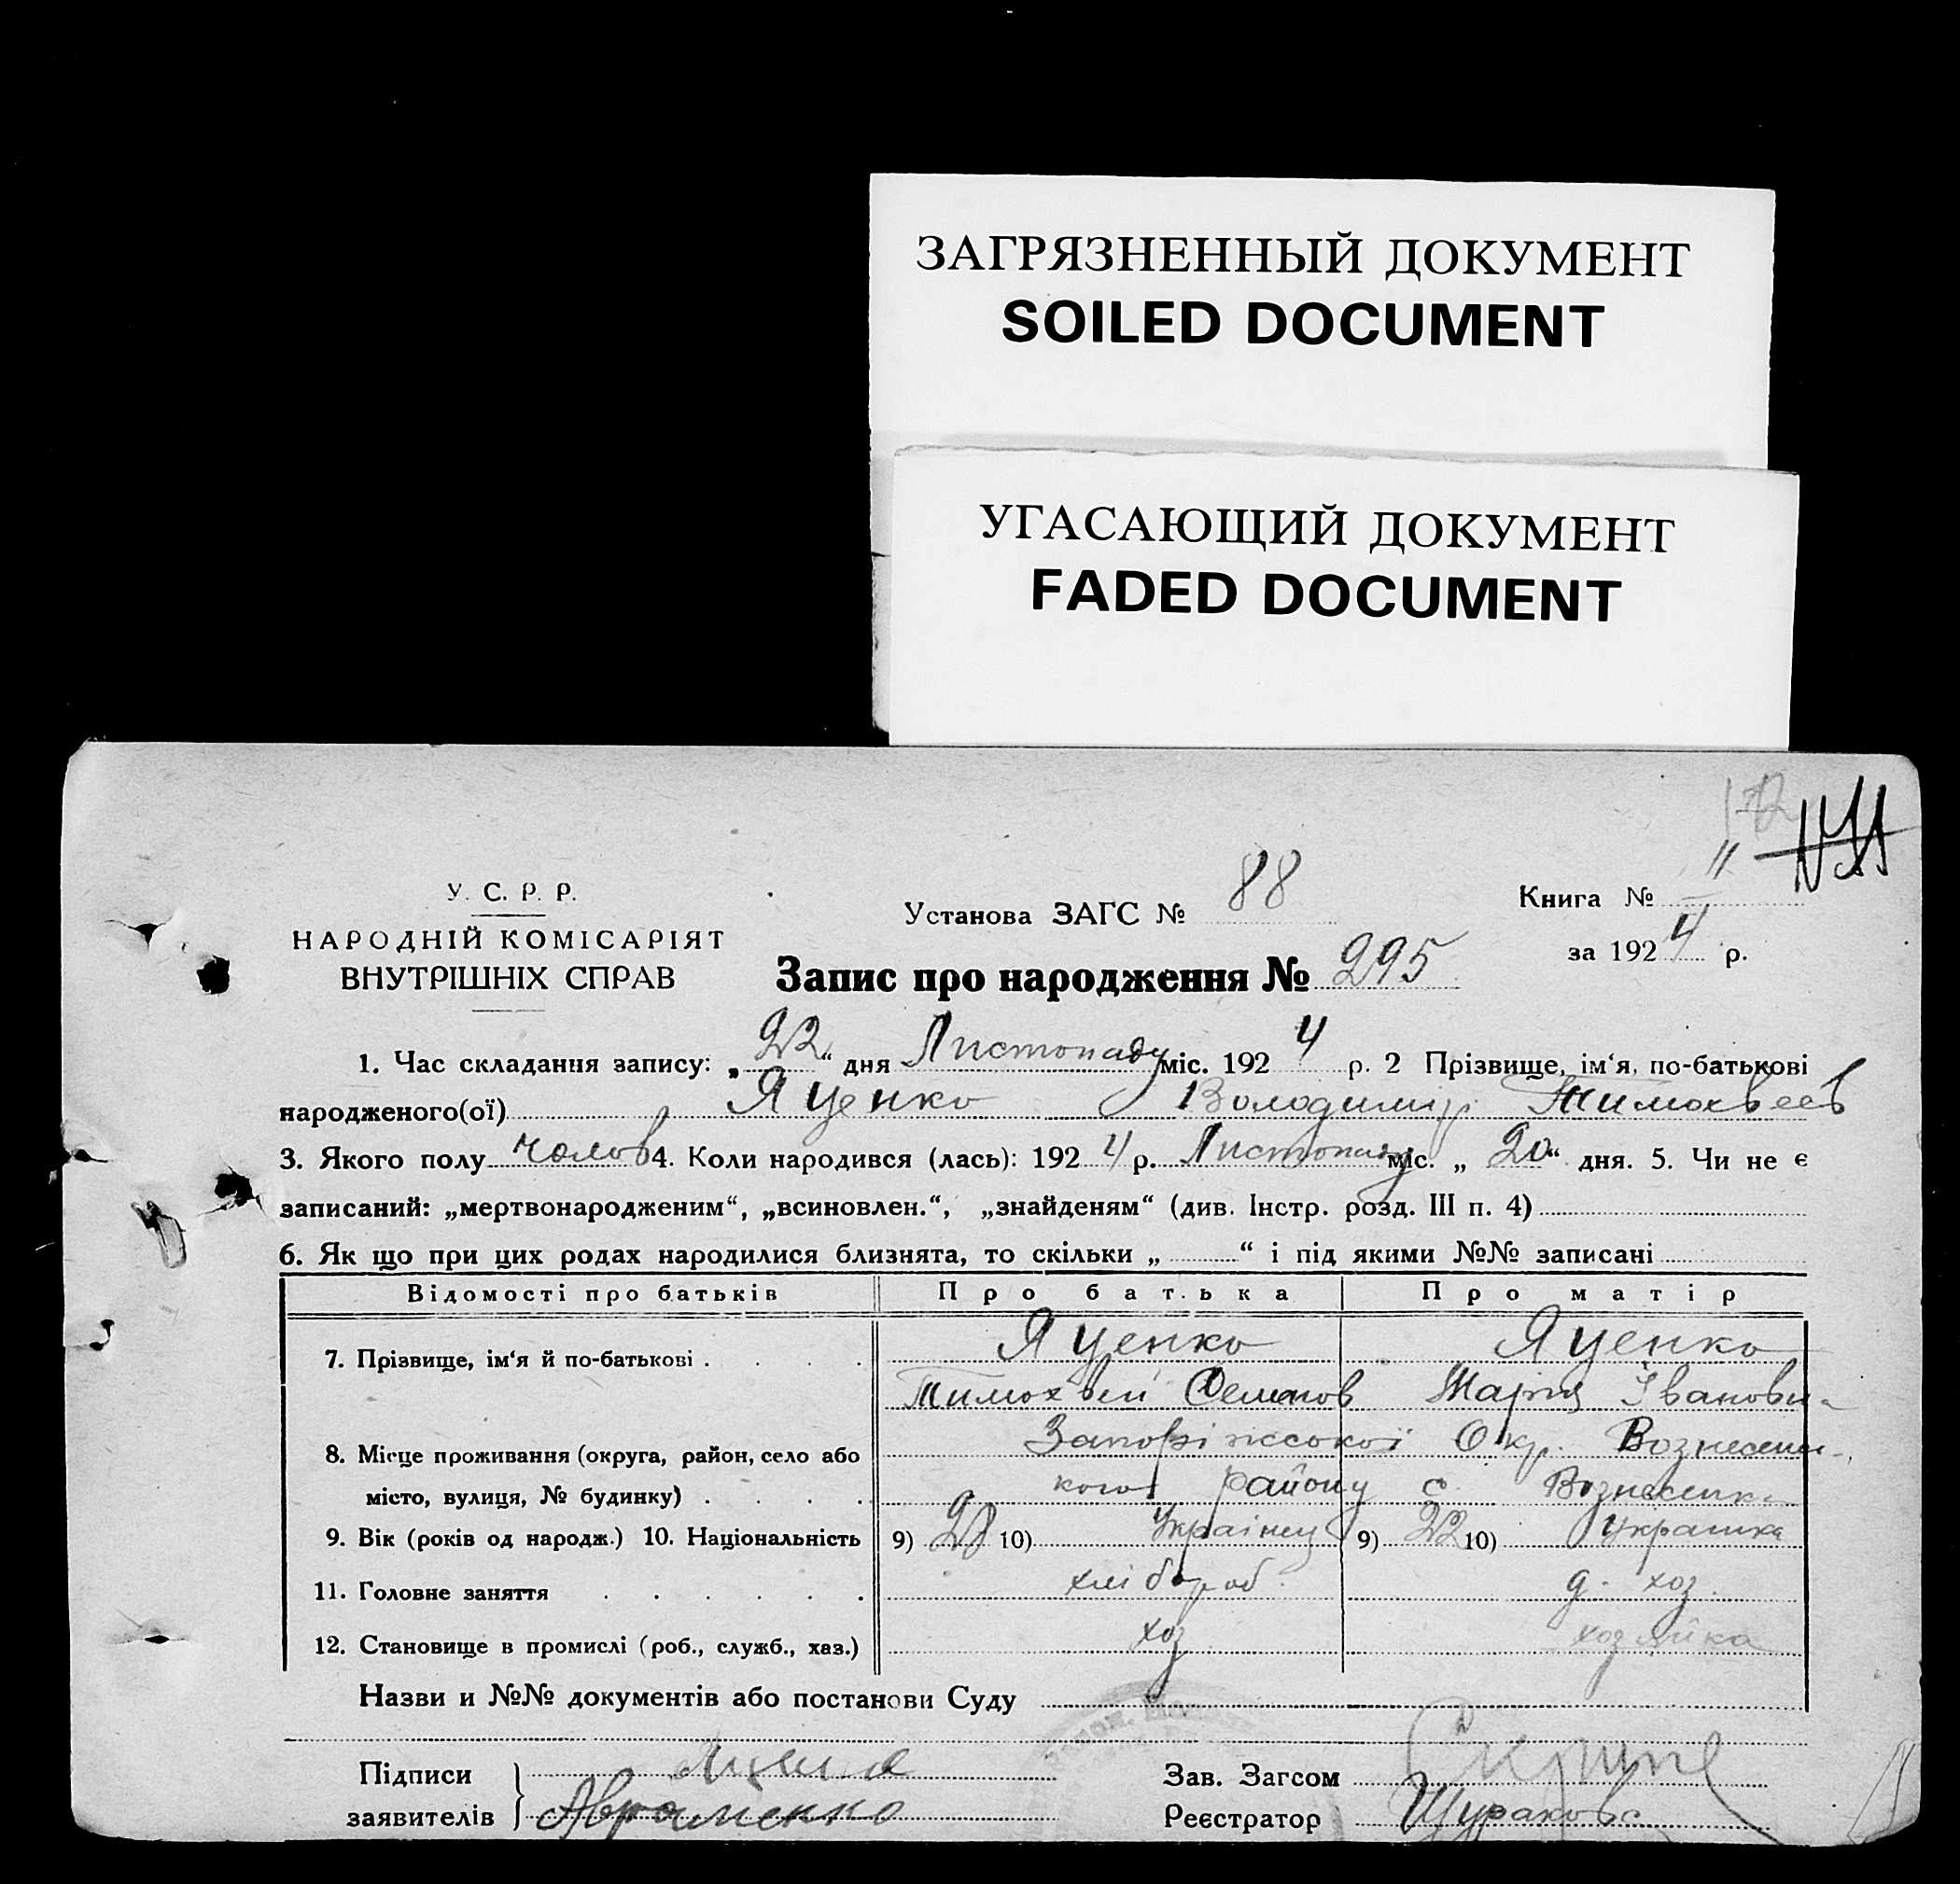 ЗАГРЯЗНЕННЫЙ ДОКУМЕНТ
SOILED DOCUMENT
УГАСАЮЩИЙ ДОКУМЕНТ
FADED DOCUMENT
У. С. Р. Р.
НАРОДНІЙ КОМІСАРІЯТ
ВНУТРІШНІХ СПРАВ
Установа ЗАГС № 88
Книга № 11
за 1924 р.
Запис про народження № 295
1. Час складання запису: „22“ дня Листопаду міс. 1924 р. 2 Прізвище, ім‘я, по-батькові
народженого(ої) Яценко Володимир Тимохвеев
3. Якого полу чолов 4. Коли народився (лась): 1924 р. Листопаду міс. „20“ дня. 5. Чи не є
записаний: „мертвонародженим“, „всиновлен.“, „знайденям“ (див. Інстр. розд. III п. 4)
6. Як що при цих родах народилися близнята, то скільки „ “ і під якими №№ записані
Відомості про батьків Про батька Про матір
7. Прізвище, ім‘я й по-батькові . . . . Яценко Яценко
Тимохвей Семенов Марія Іванови
8. Місце проживання (округа, район, село або Запорізської Окр. Вознесенс-
місто, вулиця, № будинку) . . . . кого району с. Вознесенка
9. Вік (років од народж.) 10. Національність 9) 28 10) Українец 9) 22 10) Украинка
11. Головне заняття . . . . . . хлібороб. д. хоз.
12. Становище в промислі (роб., служб., хаз.) хоз хозяйка
Назви и №№ документів або постанови Суду
Підписи
заявителів Авраменко
Зав. Загсом
Реєстратор